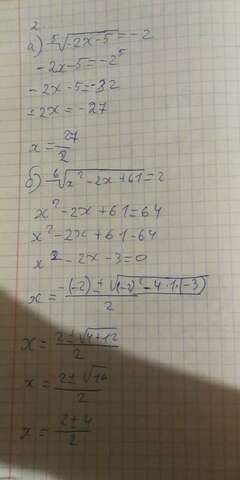 2.
а) ⁵√-2x-5 = -2
-2x-5 = -2⁵
-2x-5 = -32
-2x = -27
x = 27/2
б) ⁶√x²-2x+61 = 2
x²-2x+61 = 64
x²-2x+61-64
x²-2x-3=0
x = -(-2) ± √(-2)²-4·1·(-3) / 2
x = 2±√4+12 / 2
x = 2±√16 / 2
x = 2±4 / 2